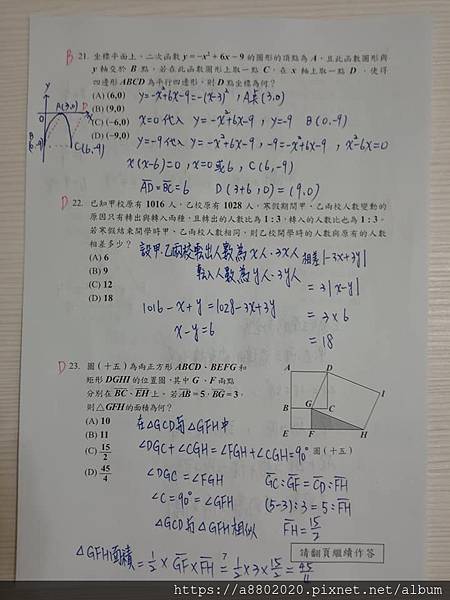 B 21. 坐標平面上,二次函數 y=-x²+6x-9 的圖形的頂點為 A,且此函數圖形與
y 軸交於 B 點。若在此函數圖形上取一點 C,在 x 軸上取一點 D,使得
四邊形 ABCD 為平行四邊形,則 D 點坐標為何?
(A) (6,0)
(B) (9,0)
(C) (-6,0)
(D) (-9,0)
y=-x²+6x-9=-(x-3)²,A(3,0)
x=0 代入 y=-x²+6x-9,y=-9 B(0,-9)
y=-9 代入 y=-x²+6x-9,-9=-x²+6x-9,x²-6x=0
x(x-6)=0,x=0或6,C(6,-9)
AD=BC=6 D(3+6,0)=(9,0)
y
A(3,0)
D
x
B(0,-9)
C(6,-9)
D 22. 已知甲校原有 1016 人,乙校原有 1028 人,寒假期間甲、乙兩校人數變動的
原因只有轉出與轉入兩種,且轉出的人數比為 1:3,轉入的人數比也為 1:3。
若寒假結束開學時甲、乙兩校人數相同,則乙校開學時的人數與原有的人數
相差多少?
(A) 6
(B) 9
(C) 12
(D) 18
設甲、乙兩校轉出人數為 x人、3x人
轉入人數為 y人、3y人
1016-x+y=1028-3x+3y
x-y=6
相差|-3x+3y|
=3|x-y|
=3×6
=18
D 23. 圖(十五)為兩正方形 ABCD、BEFG 和
矩形 DGHI 的位置圖,其中 G、F 兩點
分別在 BC、EH 上。若 AB=5,BG=3,
則△GFH的面積為何?
(A) 10
(B) 11
(C) 15/2
(D) 45/4
A D
I
G
B C
E F H
圖(十五)
在△GCD與△GFH中
∠DGC+∠CGH=∠FGH+∠CGH=90°
∠DGC=∠FGH
∠C=90°=∠GFH
△GCD與△GFH相似
GC:GF=CD:FH
(5-3):3=5:FH
FH=15/2
△GFH面積=1/2×GF×FH=1/2×3×15/2=45/4
7
請翻頁繼續作答
https://a8802020.pixnet.net/album